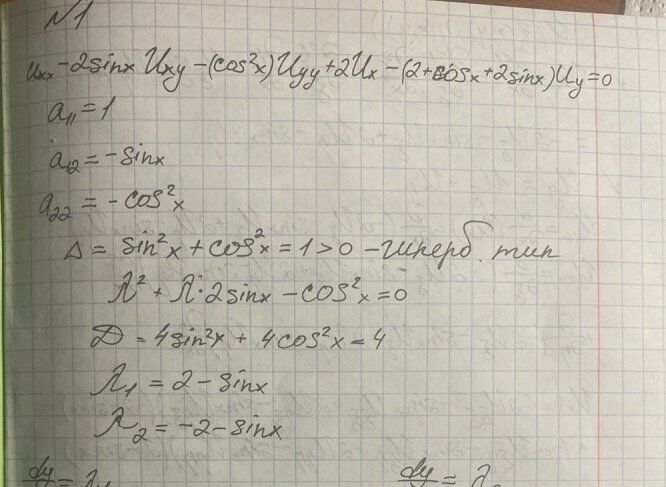 N1
Uxx - 2sinx Uxy - (cos²x)Uyy + 2Ux - (2+cosx+2sinx)Uy = 0
a₁₁ = 1
a₁₂ = -sinx
a₂₂ = -cos²x
Δ = sin²x + cos²x = 1 > 0 - гиперб. тип
λ² + λ·2sinx - cos²x = 0
D = 4sin²x + 4cos²x = 4
λ₁ = 2 - sinx
λ₂ = -2 - sinx
dy/ = λ dy/ = λ